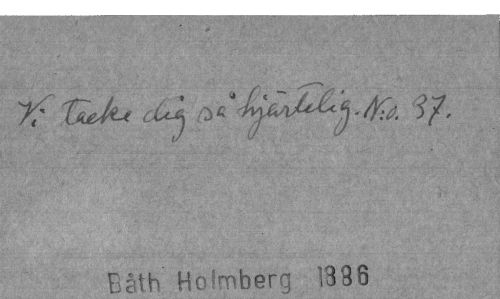 Vi tacke dig så hjärtelig. N:o. 37.
Båth Holmberg 1886